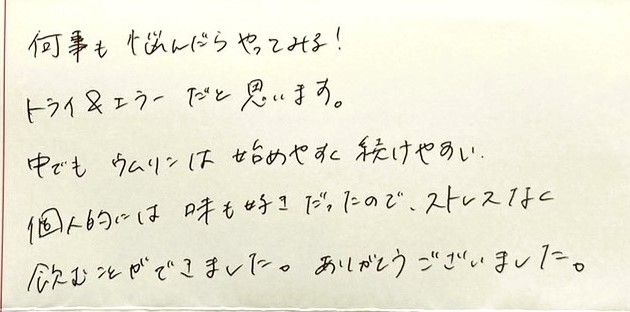 何事も悩んだらやってみる!
トライ&エラーだと思います。
中でもウムリンは始めやすく続けやすい.
個人的には味も好きだったので、ストレスなく
飲むことができました。ありがとうございました。